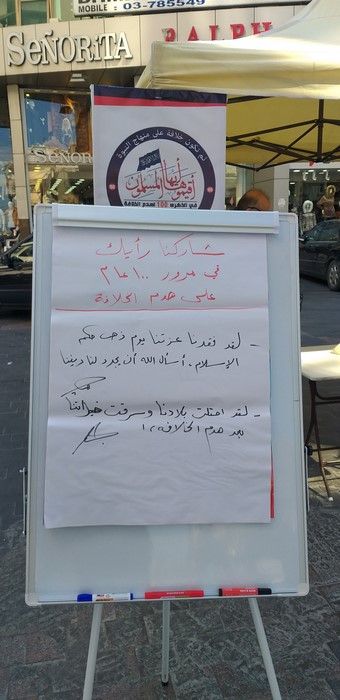 MOBILE : 03-785549
SEÑORITA
RALPH
SEÑORITA
ثم تكون خلافة على منهاج النبوة
أقيموها أيها المسلمون
في الذكرى 100 لهدم الخلافة
شاركنا رأيك
في مرور ١٠٠ عام
على هدم الخلافة
- لقد فقدنا عزتنا يوم ذهب حكم
الإسلام. أسأل الله أن يجدد لنا ديننا
- لقد احتلت بلادنا وسرقت خيراتنا
بعد هدم الخلافة ،!